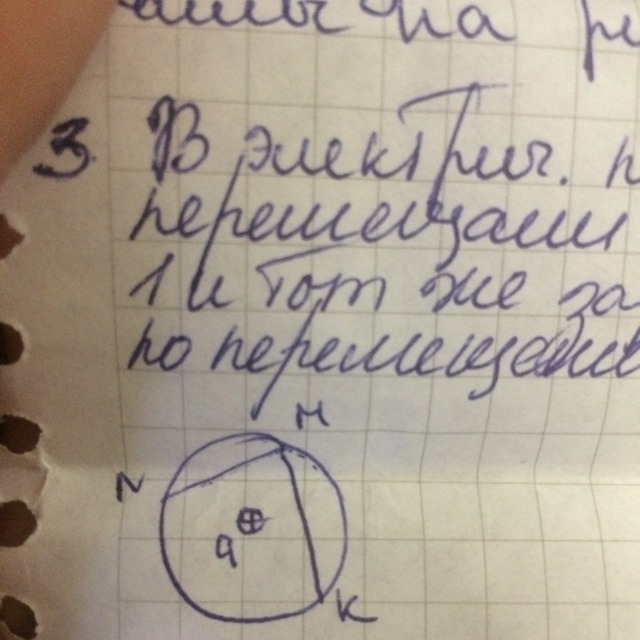 на
3. В электрич.
перемещали
1 и тот же за
по перемещению
M
N
q
K